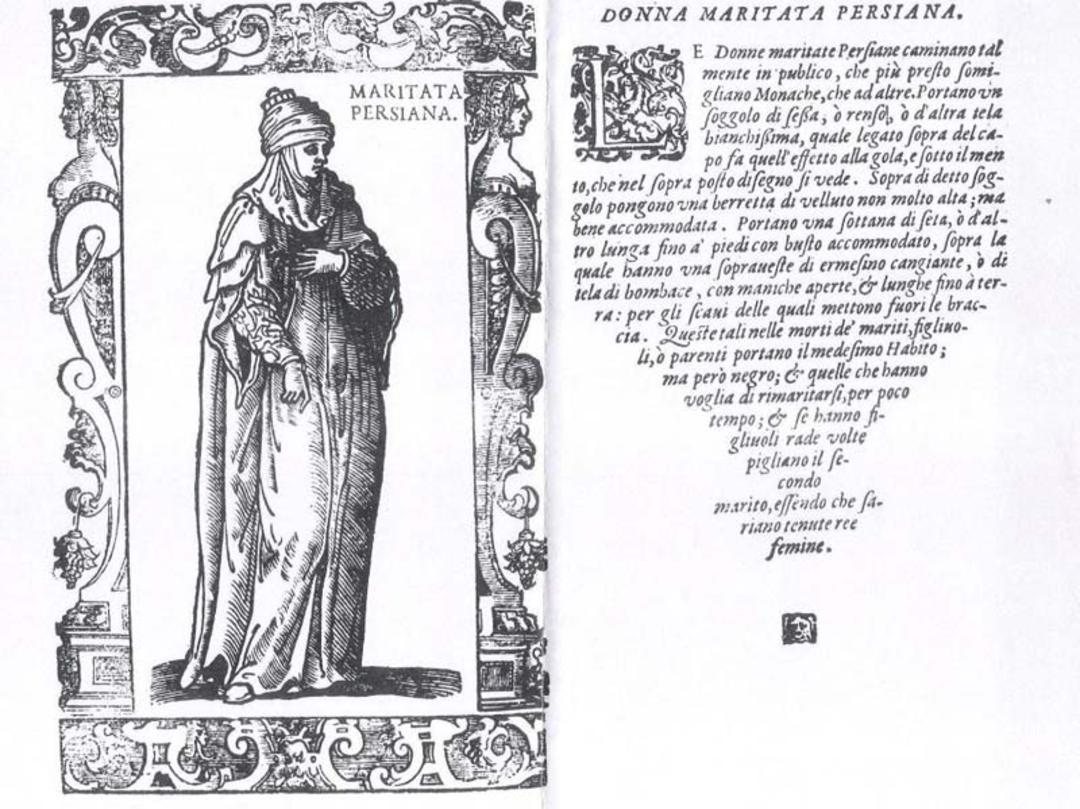 MARITATA
PERSIANA.
DONNA MARITATA PERSIANA.
LE Donne maritate Perſiane caminano tal
mente in publico, che più preſto ſomi-
gliano Monache, che ad altre. Portano vn
ſoggolo di ſeſſa, ò renſo, ò d'altra tela
bianchißima, quale legato ſopra del ca-
po fa quell'effetto alla gola, e ſotto il men
to, che nel ſopra poſto diſegno ſi vede. Sopra di detto ſog-
golo pongono vna berretta di velluto non molto alta; ma
bene accommodata. Portano vna ſottana di ſeta, ò d'al-
tro lunga fino a' piedi con buſto accommodato, ſopra la
quale hanno vna ſoprauеſte di ermeſino cangiante, ò di
tela di bombace, con maniche aperte, & lunghe fino à ter-
ra: per gli ſcaui delle quali mettono fuori le brac-
cia. Queſte tali nelle morti de' mariti, figliuo-
li, ò parenti portano il medeſimo Habito;
ma però negro; & quelle che hanno
voglia di rimaritarſi, per poco
tempo; & ſe hanno fi-
gliuoli rade volte
pigliano il ſe-
condo
marito, eſſendo che ſa-
riano tenute ree
femine.